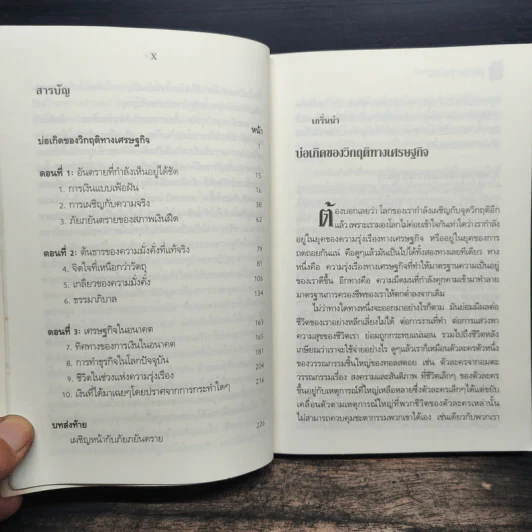 X
สารบัญ
หน้า
บ่อเกิดของวิกฤติทางเศรษฐกิจ 1
ตอนที่ 1: อันตรายที่กำลังเห็นอยู่ได้ชัด 15
1. การเงินแบบเพ้อฝัน 16
2. การเผชิญกับความจริง 38
3. ภัยภยันตรายของสภาพเงินฝืด 62
ตอนที่ 2: ต้นธารของความมั่งคั่งที่แท้จริง 79
4. จิตใจที่เหนือกว่าวัตถุ 81
5. เกลียวของความมั่งคั่ง 106
6. ธรรมาภิบาล 134
ตอนที่ 3: เศรษฐกิจในอนาคต 163
7. ทิศทางของการเงินในอนาคต 165
8. การทำธุรกิจในโลกปัจจุบัน 181
9. ชีวิตในช่วงแห่งความรุ่งเรือง 204
10. เงินที่ได้มาเฉยๆโดยปราศจากการกระทำใดๆ 216
บทส่งท้าย
เผชิญหน้ากับภัยภยันตราย
เกริ่นนำ
บ่อเกิดของวิกฤติทางเศรษฐกิจ
ต้องบอกเลยว่า โลกของเรากำลังเผชิญกับจุดวิกฤติอีก
แล้ว เพราะเราเองก็ไม่ค่อยเข้าใจกันเท่าใดว่าเรากำลัง
อยู่ในยุคของความรุ่งเรืองทางเศรษฐกิจ หรืออยู่ในยุคของการ
ถดถอยกันแน่ คือดูๆแล้วมันเป็นไปได้ทั้งสองทางเลยทีเดียว ทาง
หนึ่งคือ ความรุ่งเรืองทางเศรษฐกิจที่ทำให้มาตรฐานความเป็นอยู่
ของเราดีขึ้น อีกทางคือ ความมืดมนที่กำลังคุกคามเข้ามาทำลาย
มาตรฐานการครองชีพของเราให้ตกต่ำลงจากเดิม
ไม่ว่าทางใดทางหนึ่งจะออกมาอย่างไรก็ตาม มันย่อมมีผลต่อ
ชีวิตของเราอย่างหลีกเลี่ยงไม่ได้ ต่อการงานที่ทำ ต่อการแสวงหา
ความสุขของชีวิตเรา ย่อมถูกกระทบแน่นอน รวมไปถึงชีวิตหลัง
เกษียณว่าเราจะใช้จ่ายอย่างไร ดูๆแล้วเราก็เหมือนตัวละครตัวหนึ่ง
ของวรรณกรรมชิ้นใหญ่ของทอลสตอย เช่น ตัวละครจากอมตะ
วรรณกรรมเรื่อง สงครามและสันติภาพ ที่ชีวิตเล็กๆ ของตัวละคร
ขึ้นอยู่กับเหตุการณ์ที่ใหญ่เหลือหลายซึ่งตัวละครเล็กๆได้แต่ขยับ
เคลื่อนตัวตามเหตุการณ์ใหญ่ที่พวกชีวิตของตัวละครเหล่านั้น
ไม่สามารถควบคุมชะตากรรมพวกเขาได้เอง เช่นเดียวกับพวกเรา